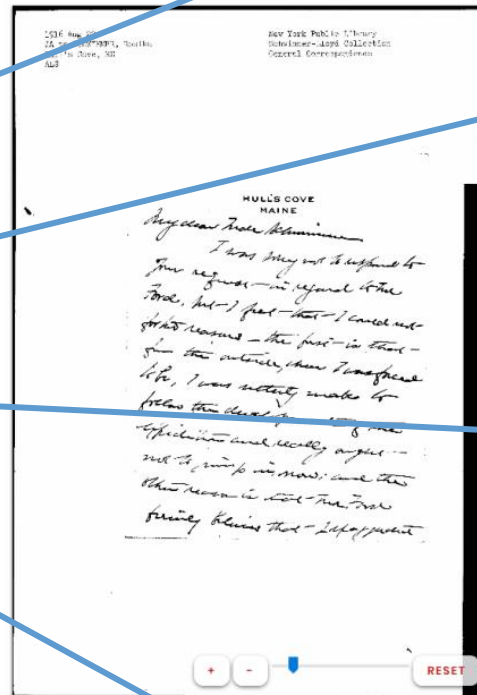 1916 Aug
JA to SCHWIMMER, Rosika
Hull's Cove, ME
ALS
New York Public Library
Schwimmer-Lloyd Collection
General Correspondence
HULL'S COVE
MAINE
My dear Mme Schwimmer
I was sorry not to respond to
your request - in regard to Mr
Ford, but I feel that I could not
for two reasons - the first is that -
from the outside, where I was forced
to be, I was utterly unable to
follow the development of the
expedition and really ought
not to jump in now; and the
other reason is that Mr. Ford
firmly believes that I
+
-
RESET